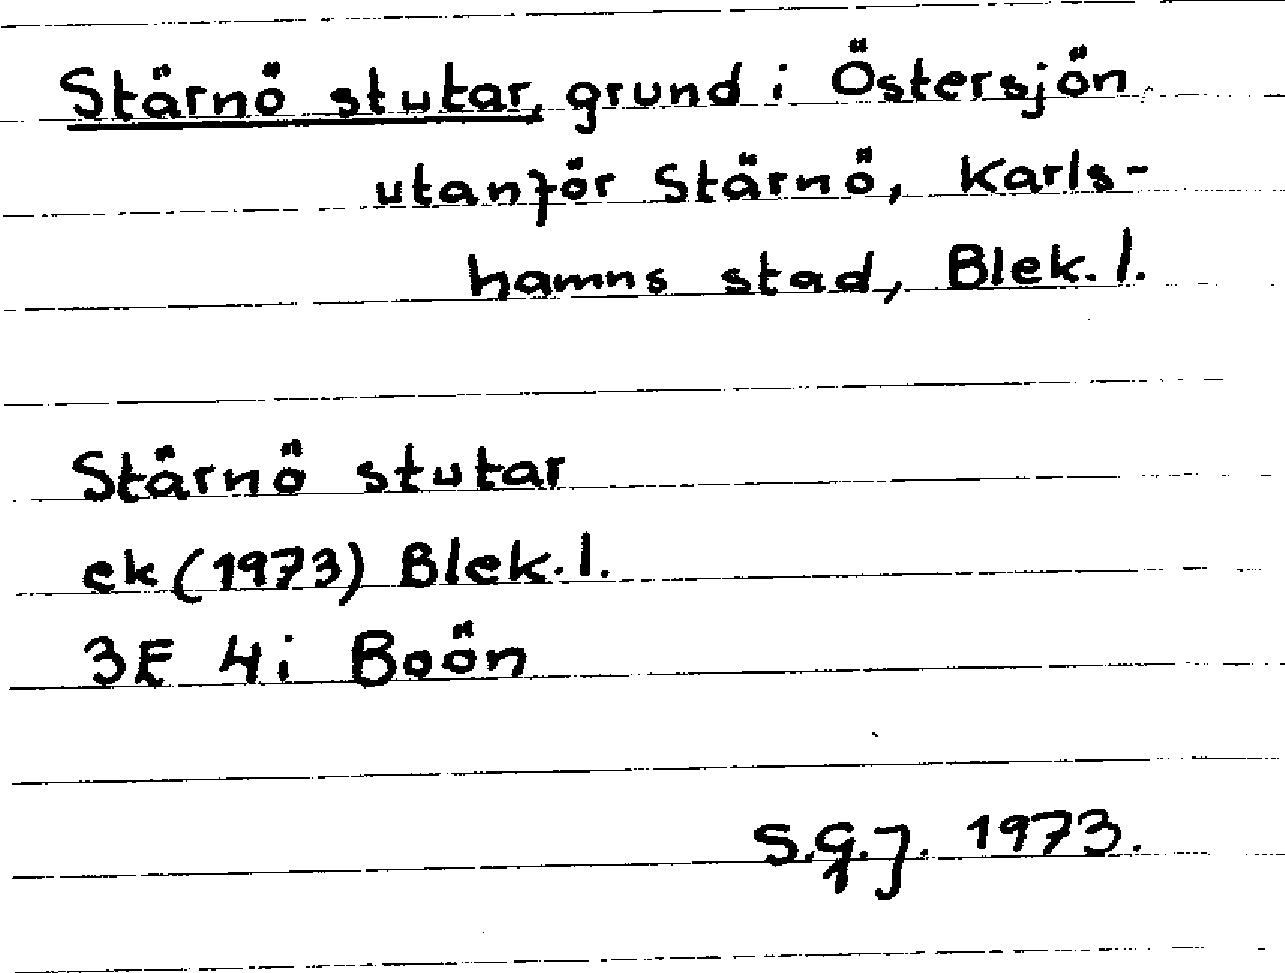 Stärnö stutar, grund i Östersjön
utanför Stärnö, Karls-
hamns stad, Blek. l.
Stärnö stutar
ek (1973) Blek. l.
3E 4i Boön
S.G.J. 1973.